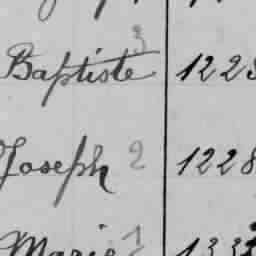 Baptiste 3 122
Joseph 2 1228
Marie 1 133